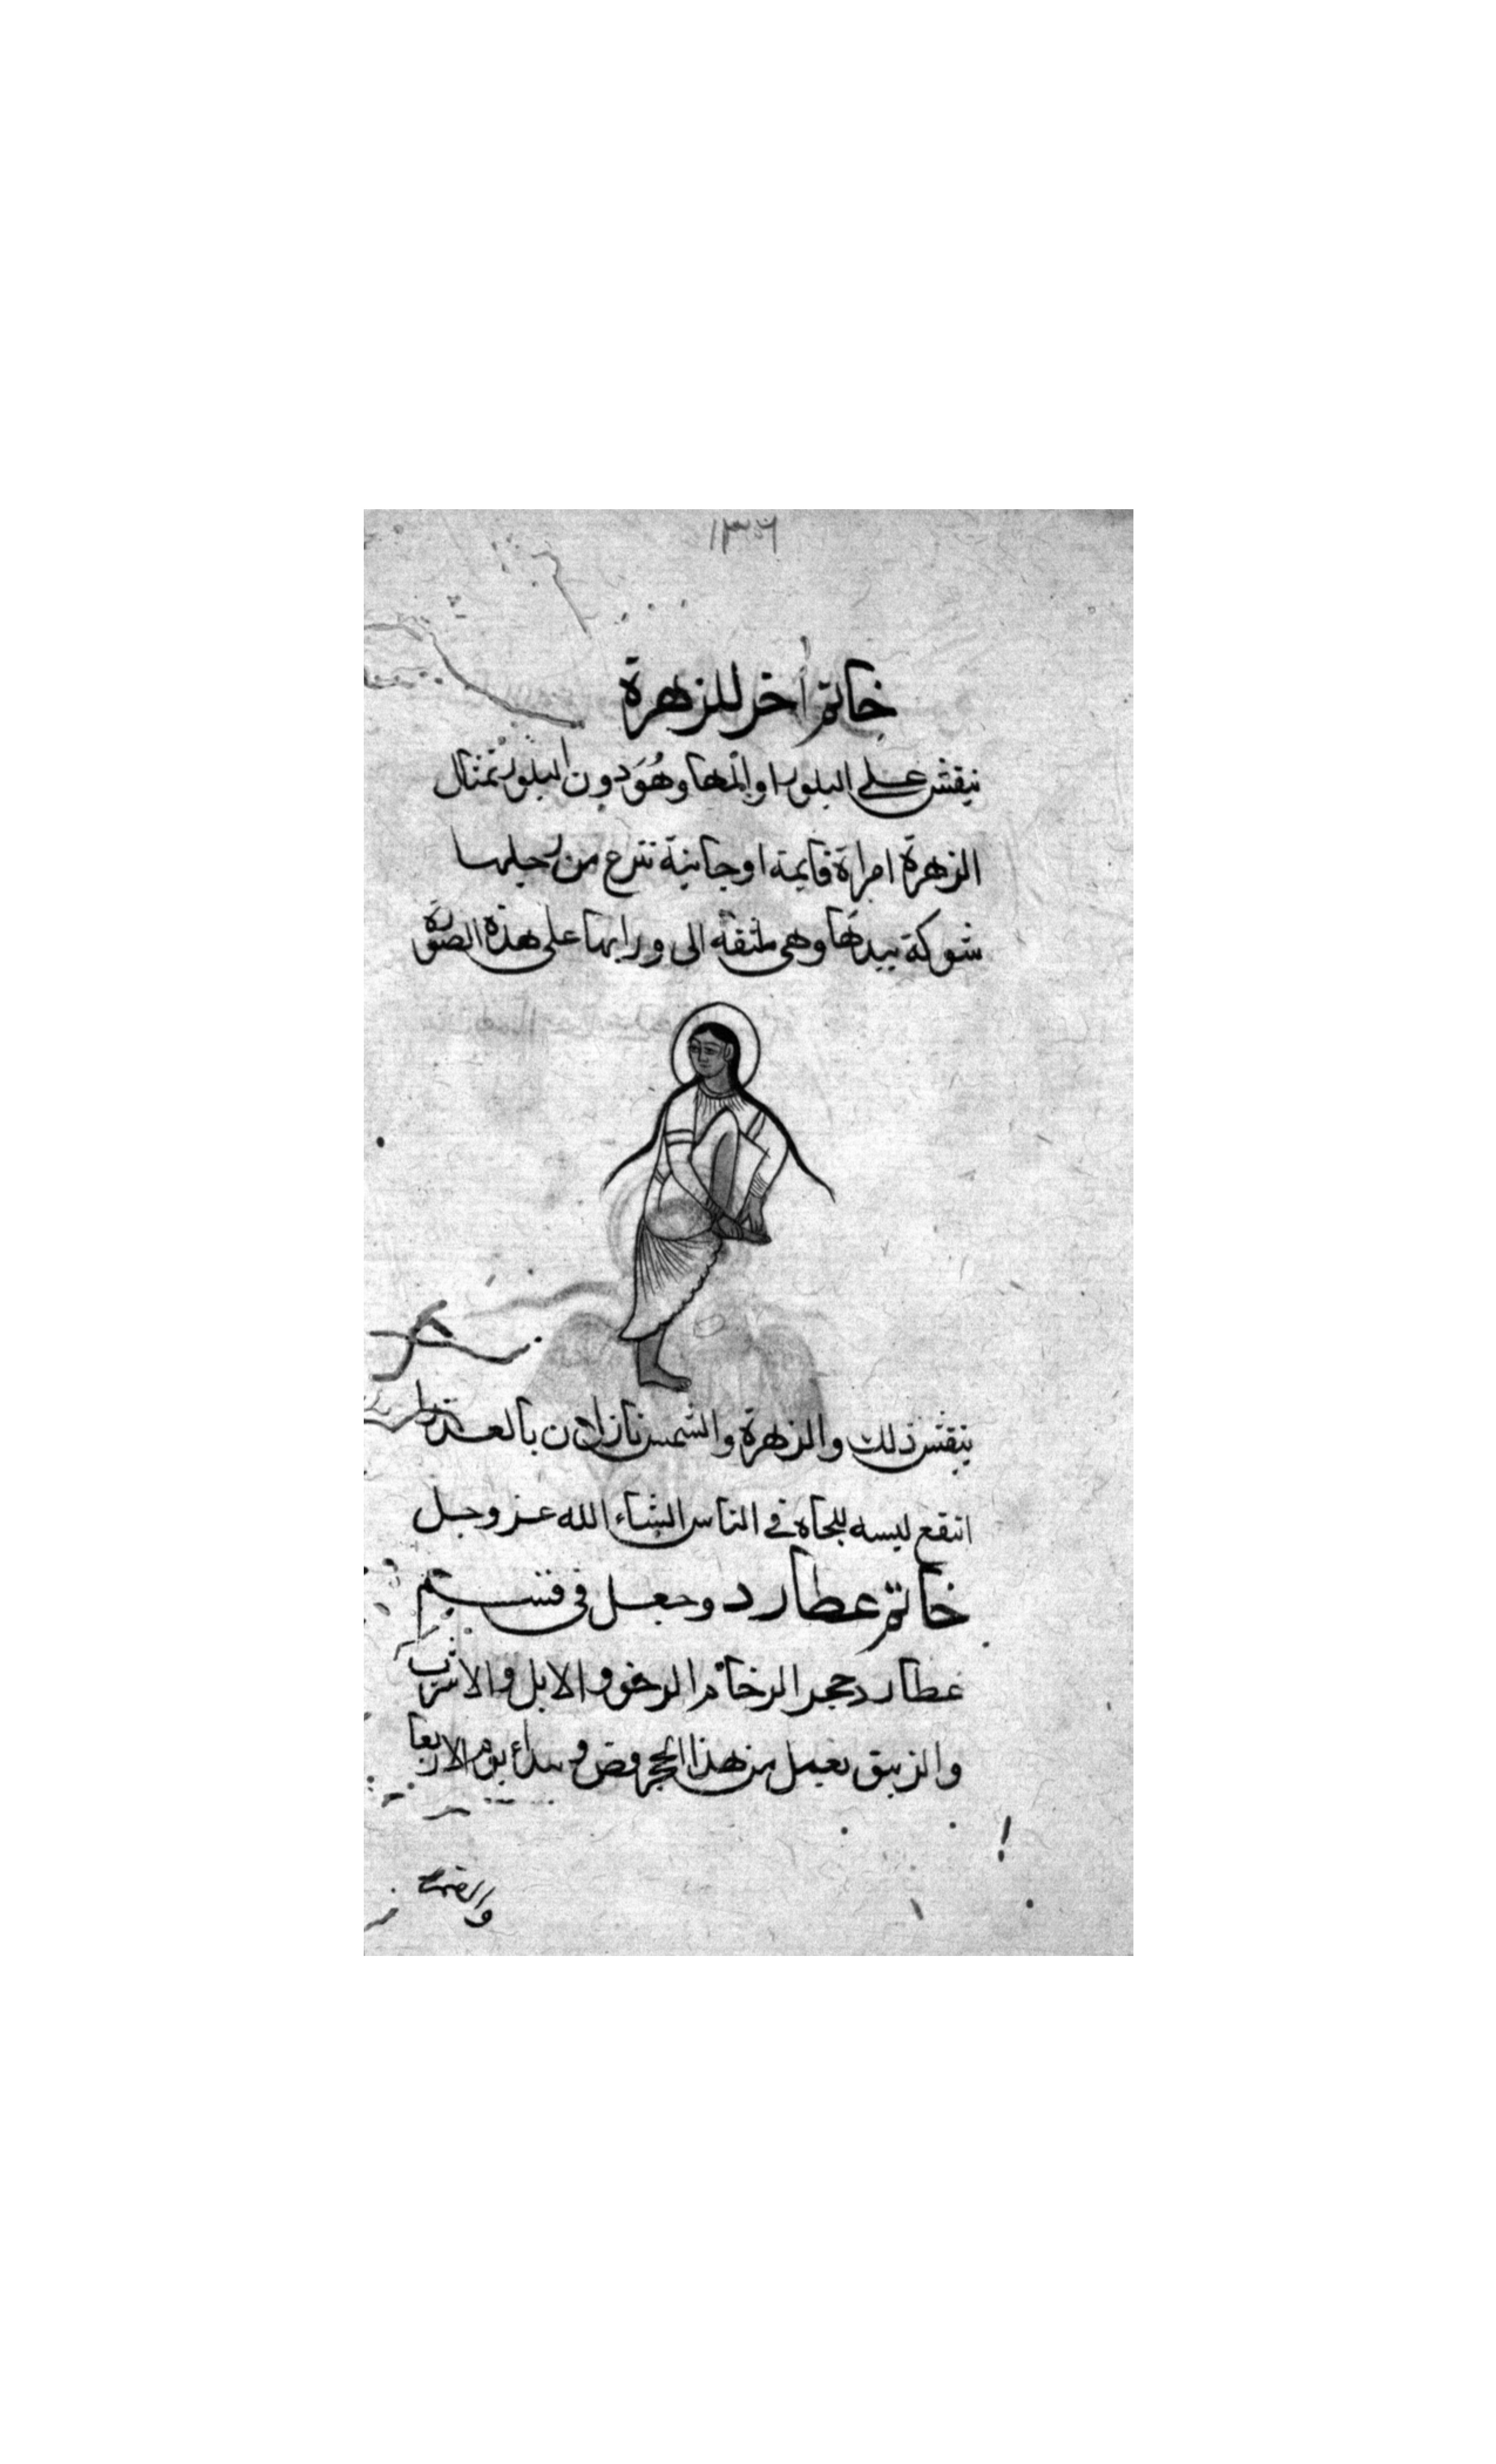 ١٣٦
خاتم اخر للزهرة
ينقش على البلور او المها وهُوَ دون البلور تمثال
الزهرة امراة قايمة او جاثية تنزع من رجلها
شوكة بيدها وهى ملتفة الى ورايها على هذه الصورة
ينقش ذلك والزهرة والشمس نازلان بالعذرا
انتفع لبسه للجاه في الناس انشاء الله عز وجل
خاتم عطارد وجعل في قسم
عطارد حجر الرخام الرخو و الابل والاسرب
والزيبق يعمل من هذا الحجر فص و يبدأ يوم الاربعا
والقمر